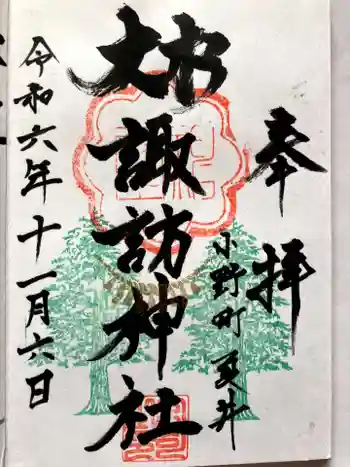 奉拝
小野町 夏井
大杉
諏訪神社
令和六年十一月六日